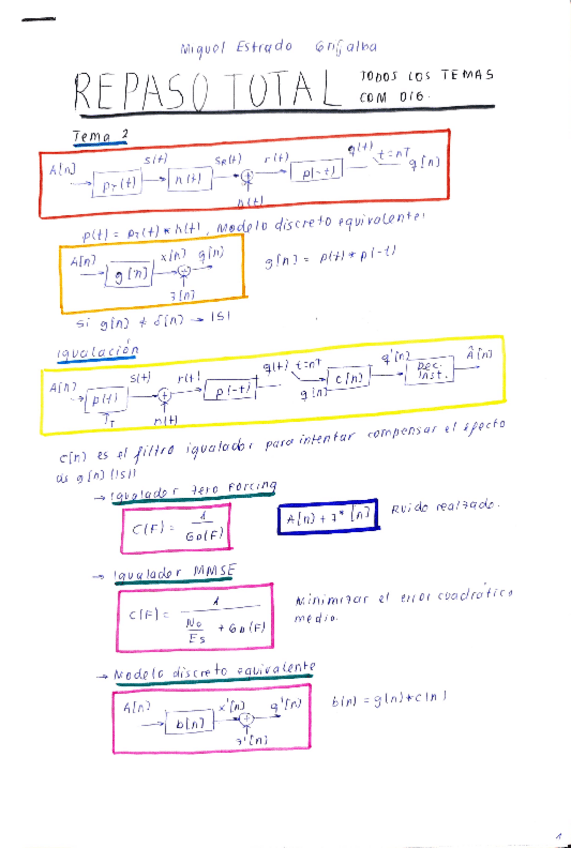 Miguel Estrado Grijalba
REPASO TOTAL TODOS LOS TEMAS
COM DIG.
Tema 2
A[n] p_T(t) s(t) h(t) s_R(t) + n(t) r(t) p(-t) q(t) t=nT q[n]
p(t) = p_T(t) * h(t), Modelo discreto equivalente:
A[n] g[n] x[n] + z[n] q[n]
g[n] = p(t) * p(-t)
Si g[n] ≠ δ[n] → ISI
Igualación
A[n] p(t) s(t) + n(t) r(t) p(-t) q(t) t=nT q[n] c[n] q'[n] Dec. Inst. Â[n]
c[n] es el filtro igualador para intentar compensar el efecto
de g[n] (ISI)
→ Igualador zero Forcing
C(F) = 1 / G_D(F)
A[n] + z'[n]
Ruido realzado.
→ Igualador MMSE
C(F) = 1 / (No/Es + G_D(F))
Minimizar el error cuadrático
medio.
→ Modelo discreto equivalente
A[n] b[n] x'[n] + z'[n] q'[n]
b[n] = g[n] * c[n]
1